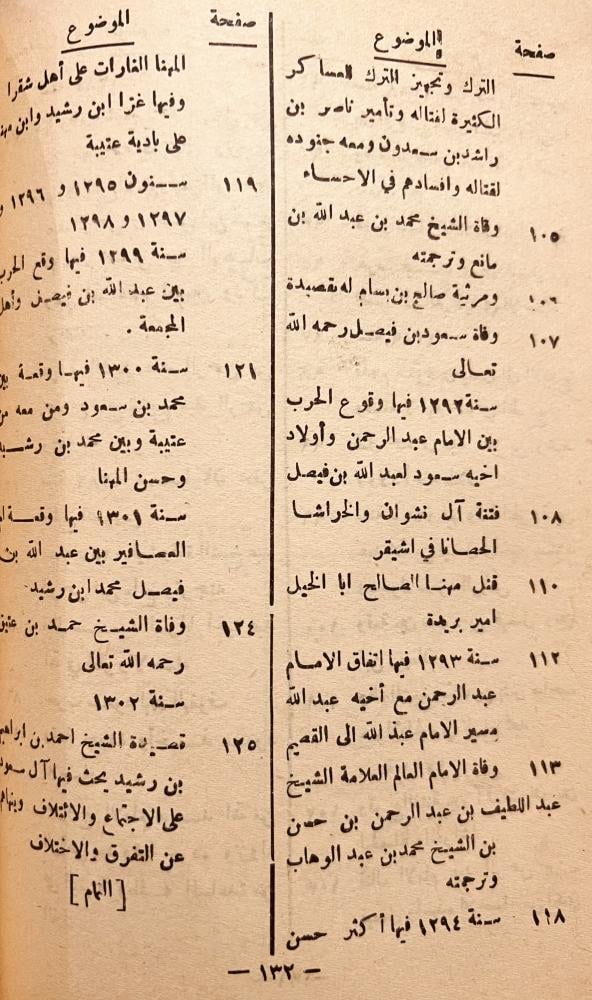 صفحة الموضوع
الترك وتجهيز الترك العساكر
الكثيرة لقتاله وتأمير ناصر بن
راشد بن سعدون ومعه جنوده
لقتاله وافسادهم في الاحساء
١٠٥ وفاة الشيخ محمد بن عبد الله بن
مانع وترجمته
١٠٦ ومرثية صالح بن بسام له بقصيدة
١٠٧ وفاة سعود بن فيصل رحمه الله
تعالى
سنة ١٢٩٢ فيها وقوع الحرب
بين الامام عبد الرحمن وأولاد
اخيه سعود لعبد الله بن فيصل
١٠٨ فتنة آل نشوان والخراشا
الحصانا في اشيقر
١١٠ قتل مهنا الصالح ابا الخيل
امير بريدة
١١٢ سنة ١٢٩٣ فيها اتفاق الامام
عبد الرحمن مع أخيه عبد الله
مسير الامام عبد الله الى القصيم
١١٣ وفاة الامام العالم العلامة الشيخ
عبد اللطيف بن عبد الرحمن بن حسن
بن الشيخ محمد بن عبد الوهاب
وترجمته
١١٨ سنة ١٢٩٤ فيها أكثر حسن
صفحة الموضوع
المهنا الغارات على أهل شقرا
وفيها غزا ابن رشيد وابن
على بادية عتيبة
١١٩ سنون ١٢٩٥ و ١٢٩٦ و
١٢٩٧ و ١٢٩٨
سنة ١٢٩٩ فيها وقع الحرب
بين عبد الله بن فيصل وأهل
المجمعة .
١٢١ سنة ١٣٠٠ فيها وقعة بين
محمد بن سعود ومن معه من
عتيبة وبين محمد بن رشيد
وحسن المهنا
سنة ١٣٠١ فيها وقعة
العصافير بين عبد الله بن
فيصل محمد ابن رشيد
١٢٤ وفاة الشيخ حمد بن
رحمه الله تعالى
سنة ١٣٠٢
١٢٥ قصيدة الشيخ احمد بن
بن رشيد يحث فيها آل سعود
على الاجتماع والائتلاف
عن التفرق والاختلاف
[ التمام ]
— ١٣٢ —